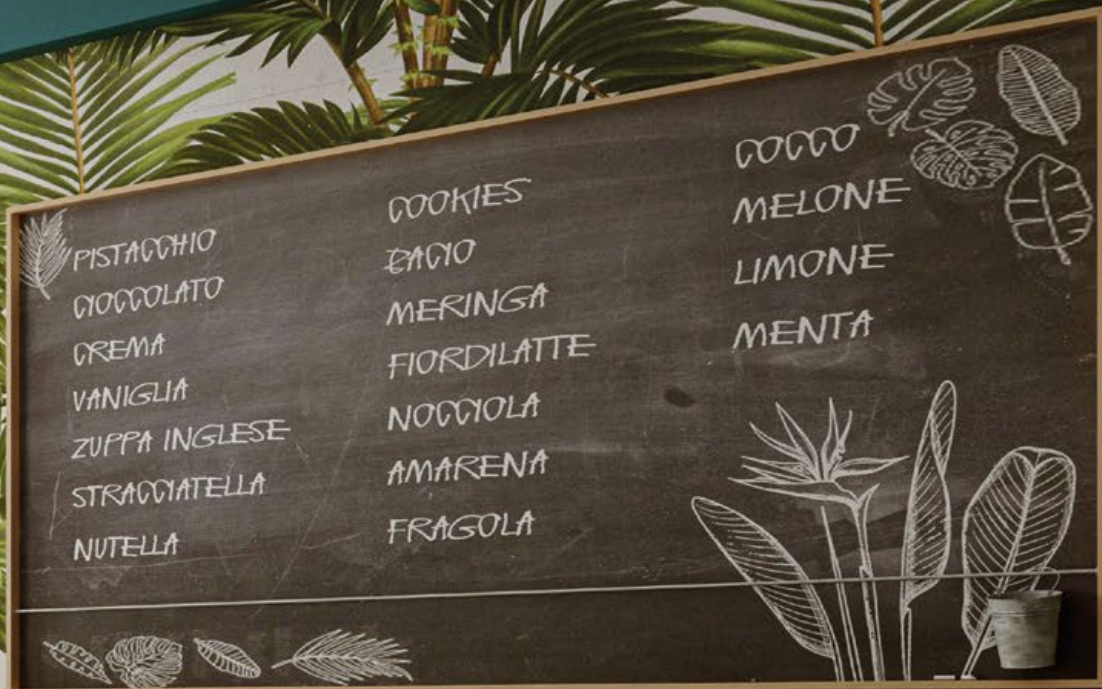 PISTACCHIO
CIOCCOLATO
CREMA
VANIGLIA
ZUPPA INGLESE
STRACCIATELLA
NUTELLA
COOKIES
BACIO
MERINGA
FIORDILATTE
NOCCIOLA
AMARENA
FRAGOLA
COCCO
MELONE
LIMONE
MENTA